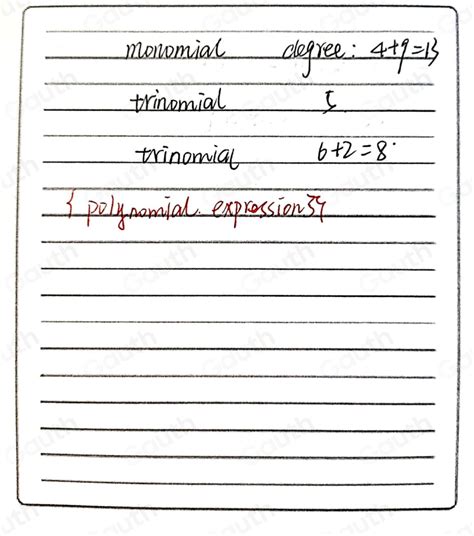 monomial degree: 4+9=13
trinomial 5
trinomial 6+2=8
{ polynomial. expression}